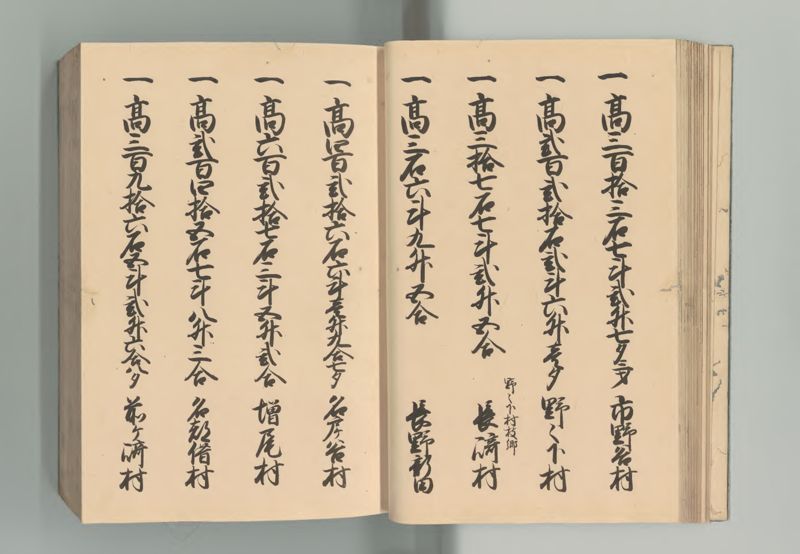 一 高三百拾三石七斗弐升七夕三才 市野谷村
一 高弐百弐拾石弐斗六升壱夕 野々下村
一 高三拾七石七斗弐升五合 野々下村枝郷 長崎村
一 高三石六斗九升五合 長野新田
一 高四百弐拾六石六斗壱升九合七夕 名戸ケ谷村
一 高六百弐拾七石三斗五升弐合 増尾村
一 高弐百四拾五石七斗八升三合 名都借村
一 高三百九拾六石五斗弐升六合八夕 前ケ崎村